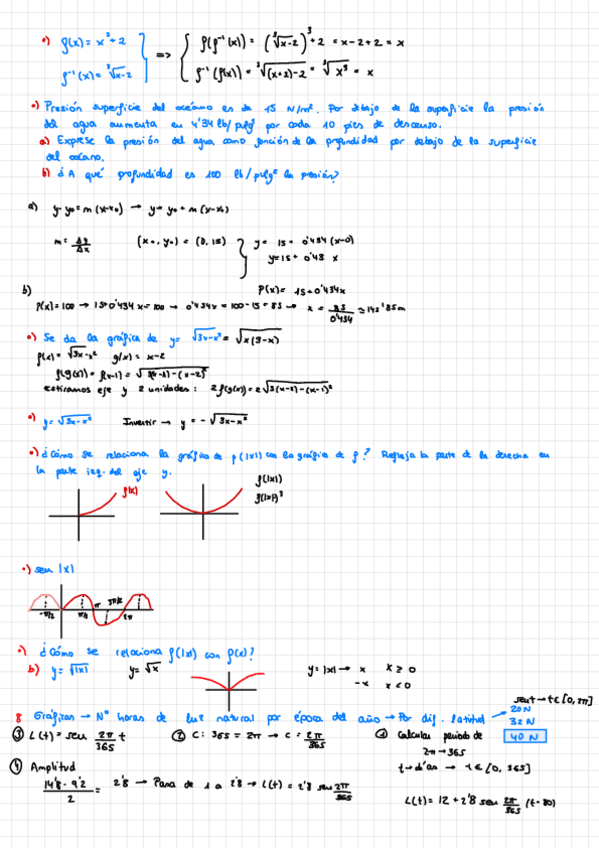 •) f(x) = x³+2
f⁻¹(x) = ∛x-2
=> f(f⁻¹(x)) = (∛x-2)³ + 2 = x-2+2 = x
f⁻¹(f(x)) = ∛(x+2)-2 = ∛x³ = x
•) Presión superficie del océano es de 15 N/m². Por debajo de la superficie la presión
del agua aumenta en 4'34 lb/pulg² por cada 10 pies de descenso.
a) Exprese la presión del agua como función de la profundidad por debajo de la superficie
del océano.
b) ¿A qué profundidad es 100 lb/pulg² la presión?
a) y-y₀ = m(x-x₀) → y = y₀ + m(x-x₀)
m = Δy/Δx (x₀, y₀) = (0, 15) y = 15 + 0'434 (x-0)
y = 15 + 0'43 x
b) P(x) = 15+0'434x
P(x) = 100 → 15+0'434 x = 100 → 0'434x = 100-15 = 85 → x = 85/0'434 ≃ 195'85m
•) Se da la gráfica de y = √3x-x² = √x(3-x)
f(x) = √3x-x² g(x) = x-2
estiramos eje y 2 unidades: 2f(g(x)) = 2√3(x-2)-(x-2)²
•) y = √3x-x² Invertir → y = -√3x-x²
•) ¿Cómo se relaciona la gráfica de f(|x|) con la gráfica de f? Refleja la parte de la derecha en
la parte izq. del eje y.
f(x)
f(|x|)
g(|x|)³
•) sen |x|
-π/2 π/2 π 3π/2 2π
•) ¿Cómo se relaciona f(|x|) con f(x)?
b) y = √|x| y = √x y = |x| → x x ≥ 0
-x x < 0
sen t → t ∈ [0, 2π]
8 Gráficas → Nº horas de luz natural por época del año → Por dif. latitud 20N
32N
40 N
③ L(t) = sen 2π/365 t ② C: 365 = 2π → C = 2π/365 ① Calcular periodo de
2π → 365
t → días → t ∈ [0, 365]
④ Amplitud
14'8 - 9'2 / 2 = 2'8 → Pasa de 1 a 2'8 → L(t) = 2'8 sen 2π/365
L(t) = 12 + 2'8 sen 2π/365 (t-80)